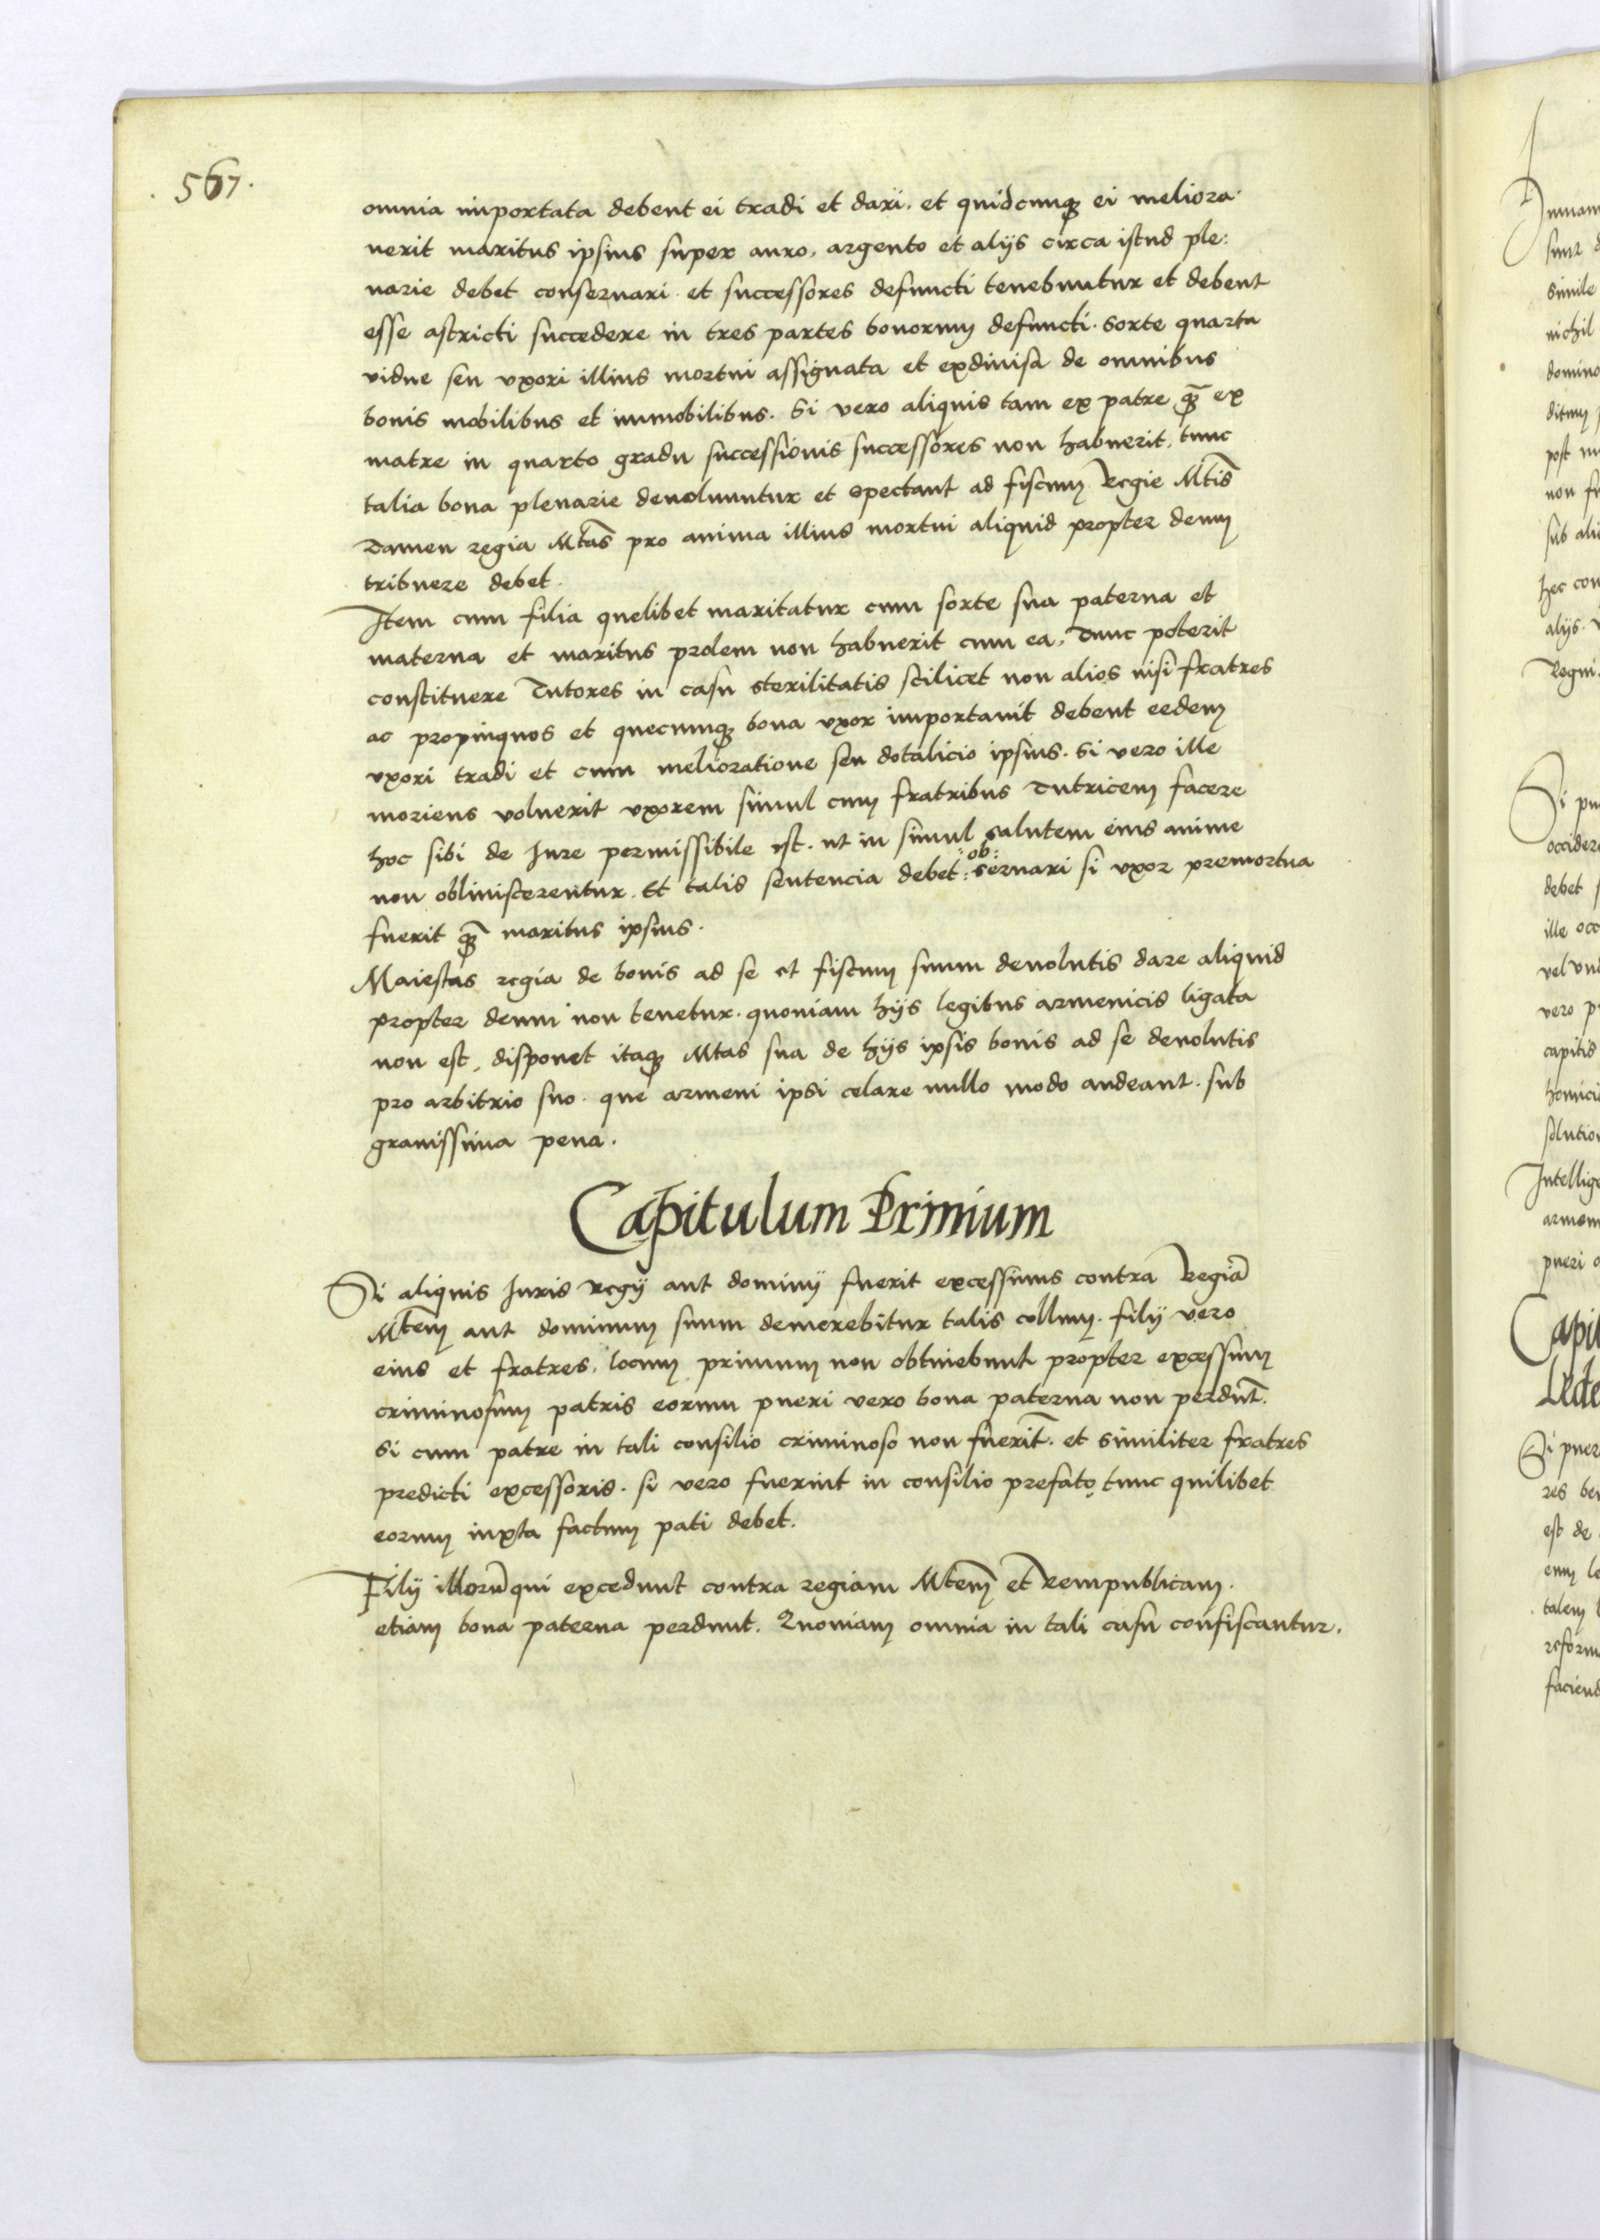 567.
omnia importata debent ei tradi et dari. et quidcunq3 ei meliora-
uerit maritus ipsius super auro, argento et alijs circa istud ple:
narie debet conseruari. et successores defuncti tenebuntur et debent
esse astricti succedere in tres partes bonorum defuncti. sorte quarta
vidue seu vxori illius mortui assignata et exdiuisa de omnibus
bonis mobilibus et immobilibus. Si vero aliquis tam ex patre q̃3 ex
matre in quarto gradu successionis successores non habuerit, tunc
talia bona plenarie deuoluuntur et spectant ad fiscum Regie Mtis̃
Tamen regia Mtas̃ pro anima illius mortui aliquid propter deum
tribuere debet.
Item cum filia quelibet maritatur cum sorte sua paterna et
materna et maritus prolem non habuerit cum ea, Tunc poterit
constituere Tutores in casu sterilitatis scilicet non alios nisi fratres
ac propinquos et quecunq3 bona vxor importauit debent eedem
vxori tradi et cum melioratione seu dotalicio ipsius. Si vero ille
moriens voluerit vxorem simul cum fratribus Tutricem facere
hoc sibi de Iure permissibile est. ut in simul salutem eius anime
non obliuiscerentur. Et talis sentencia debet :ob: seruari si vxor premortua
fuerit q̃3 maritus ipsius.
Maiestas regia de bonis ad se et fiscum suum deuolutis dare aliquid
propter deum non tenetur. quoniam hijs legibus armenicis ligata
non est, disponet itaq3 Mtas sua de hijs ipsis bonis ad se deuolutis
pro arbitrio suo. que armeni ipsi celare nullo modo audeant. sub
grauissima pena.
Capitulum Primium
Si aliquis Iuris regij aut dominij fuerit excessiuus contra Regiã
Mtem̃ aut dominum suum demerebitur talis collum. filij vero
eius et fratres, locum primum non obtinebunt propter excessum
criminosum patris eorum pueri vero bona paterna non perdũt.
Si cum patre in tali consilio criminoso non fuerit̃. et similiter fratres
predicti excessoris. si vero fuerint in consilio prefato, tunc quilibet
eorum iuxta factum pati debet.
Filij illorũ qui excedunt contra regiam Mtem̃ et Rempublicam.
etiam bona paterna perdunt. Quoniam omnia in tali casu confiscantur.
simile
nichil
domino
post
sub
hec
alijs.
Regni
Si
occidere
debet
ille
vero
capitis
pueri
Si
est de
talem